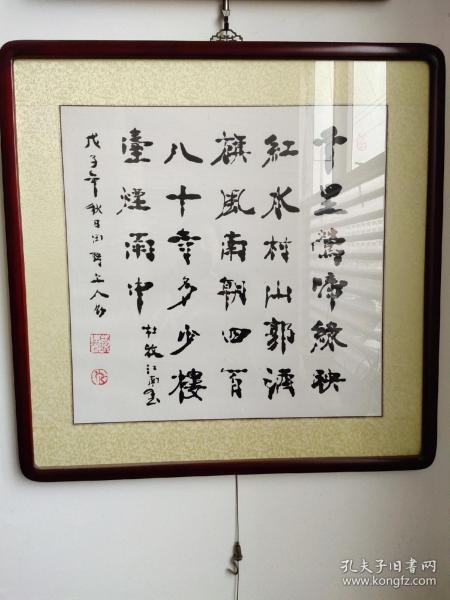 千里鶯啼綠映
紅水村山郭酒
旗風南朝四百
八十寺多少樓
臺煙雨中
杜牧江南春
戊子年秋日
孔夫子旧书网
www.kongfz.com